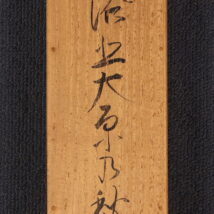 洛北大原乃秋